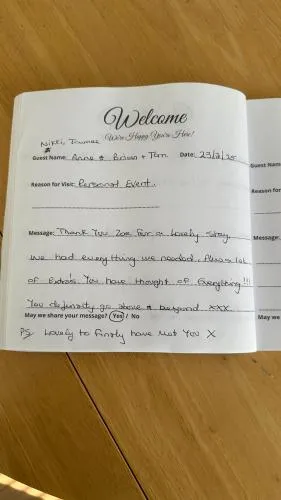 Welcome
We're Happy You're Here!
Nikki,
&
Guest Name: Anne & Brian + Tom Date: 23/2/25
Guest Name
Reason for Visit: Personal Event.
Reason for
Message: Thank you Zoe for a lovely stay
Message:
we had everything we needed. Plus a lot
of Extra's. You have thought of Everything!!!
You definitely go above & beyond xxx
May we share your message? Yes / No
May we
PS Lovely to finally have met you X